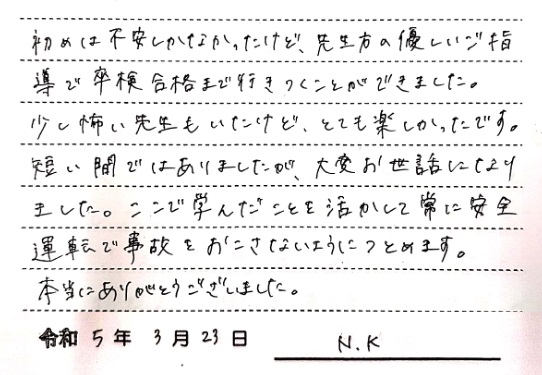 初めは不安しかなかったけど、先生方の優しいご指
導で卒検合格まで行きつくことができました。
少し怖い先生もいたけど、とても楽しかったです。
短い間ではありましたが、大変お世話になり
ました。ここで学んだことを活かして常に安全
運転で事故をおこさないようにつとめます。
本当にありがとうございました。
令和 5 年 3 月 23 日 N.K